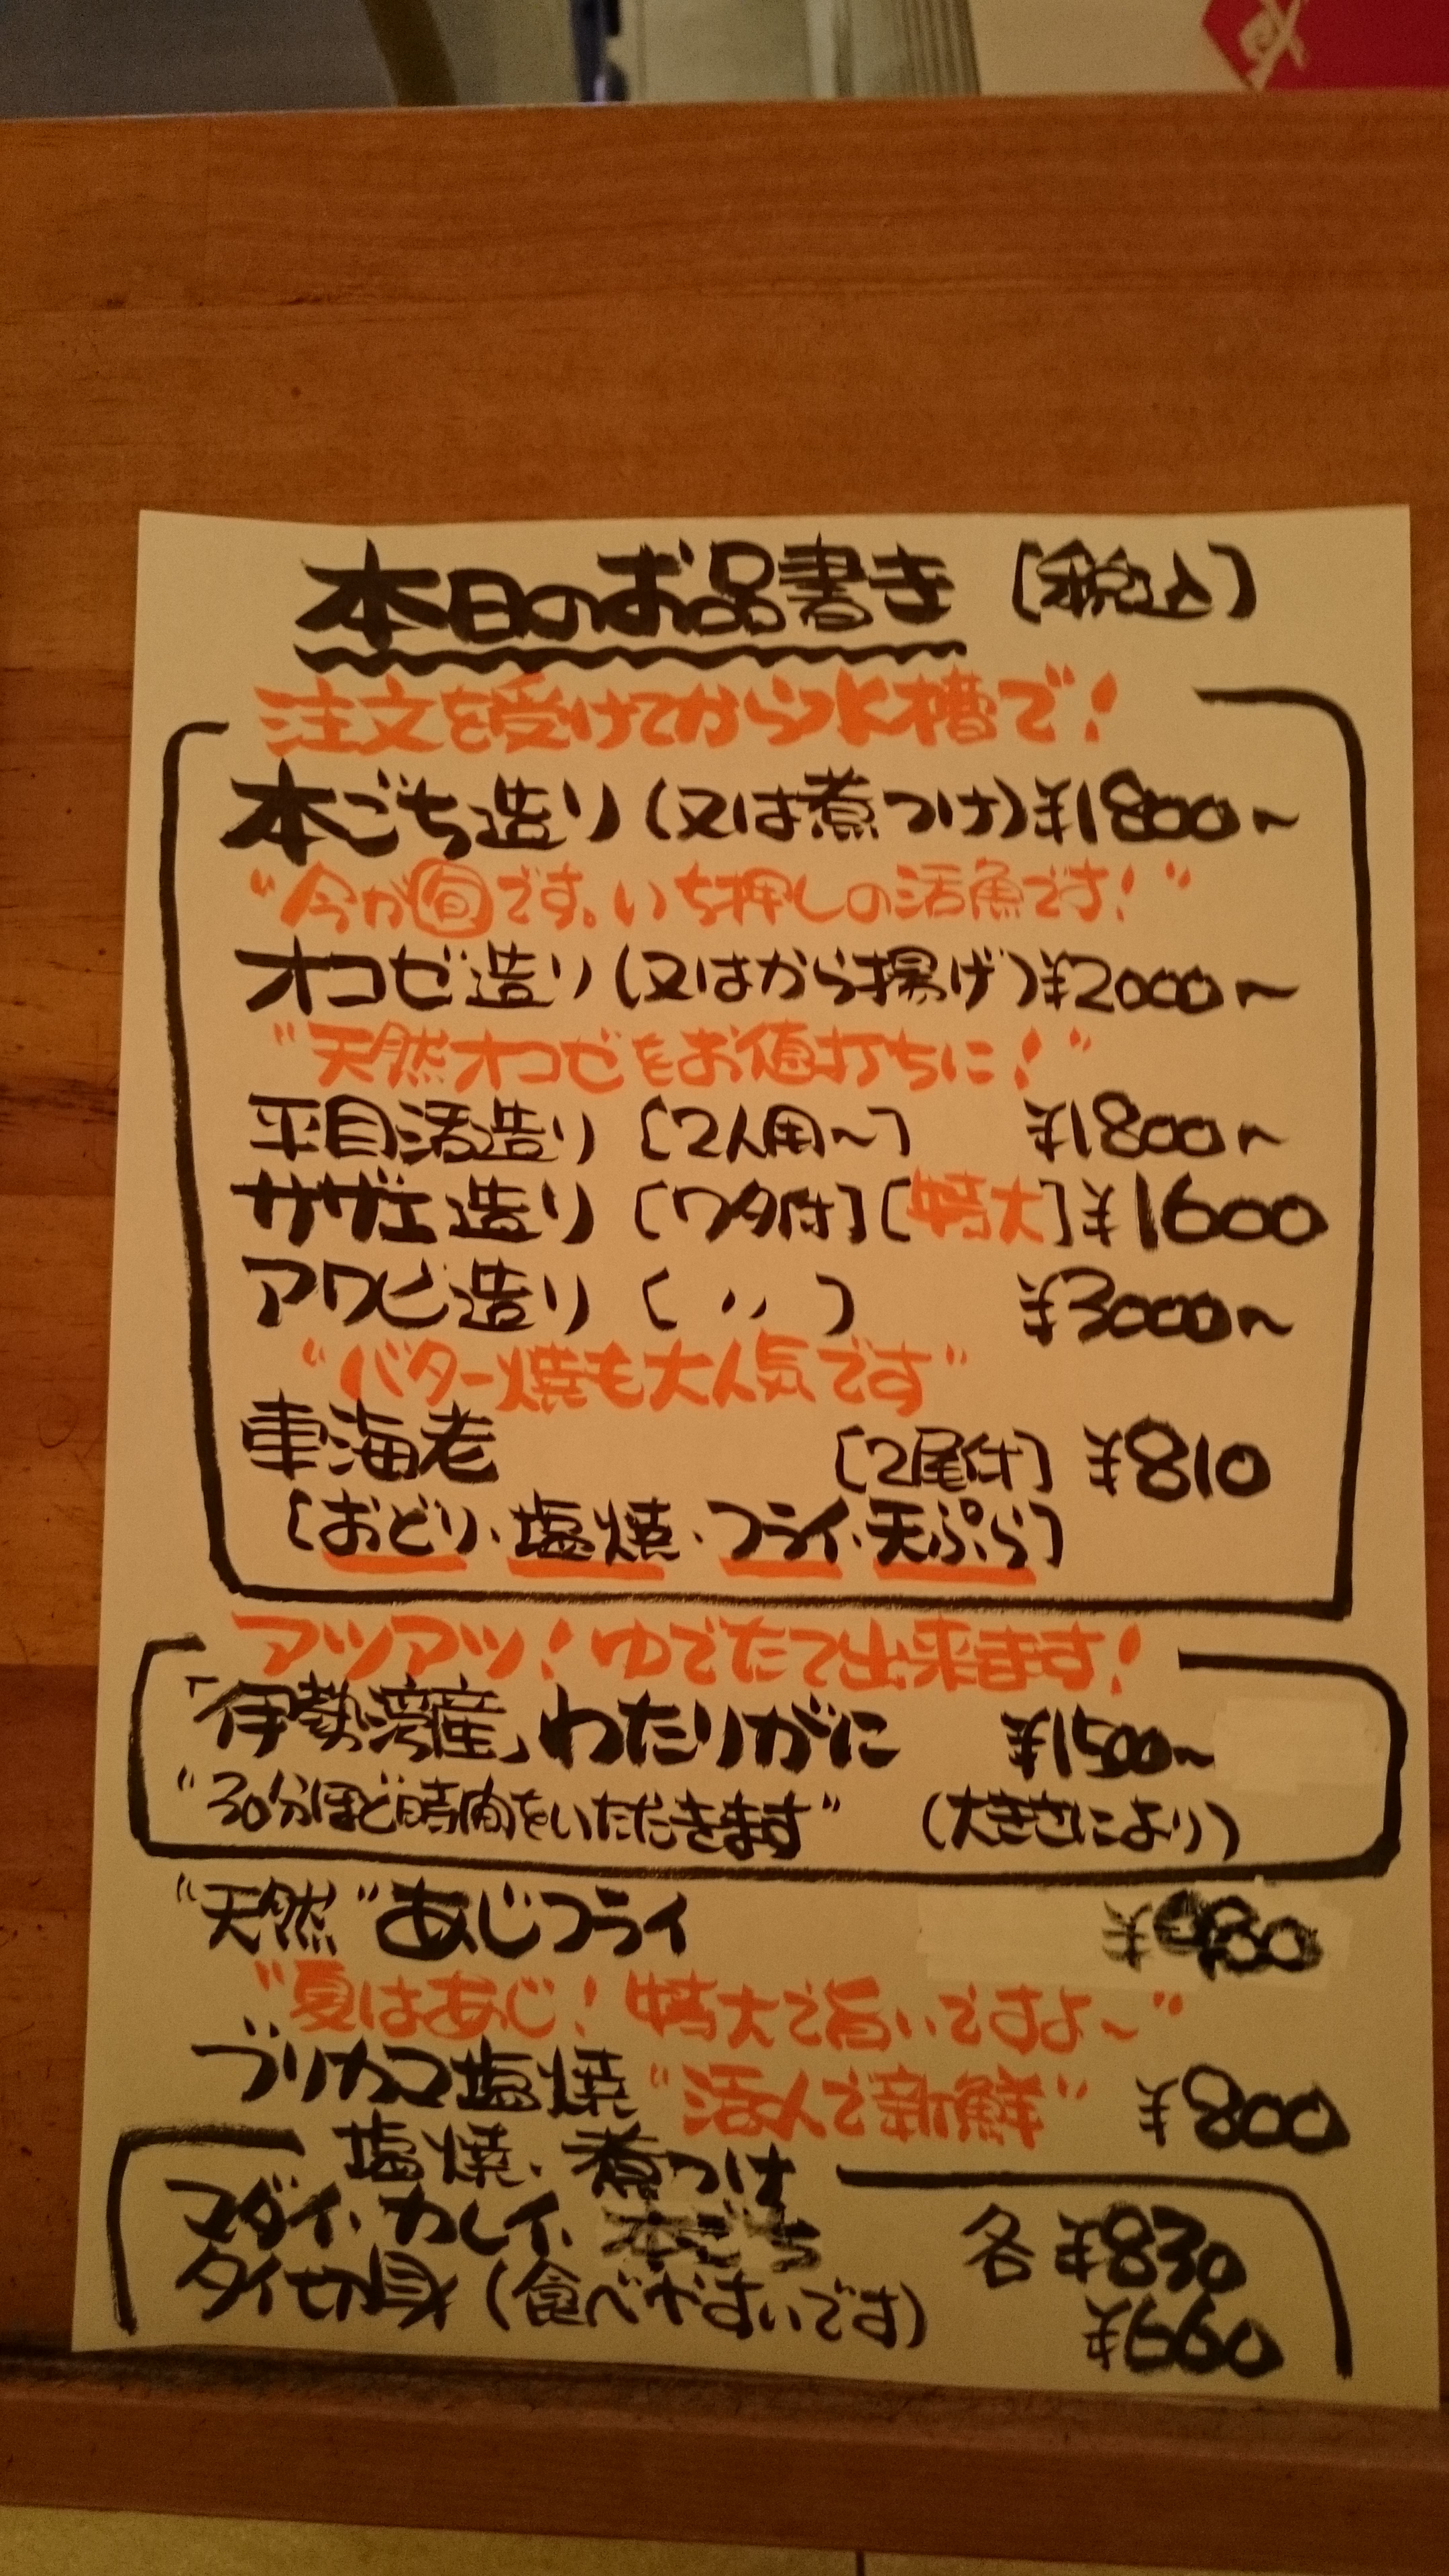 本日のお品書き [税込]
注文を受けてから水槽で!
本ごち造り (又は煮つけ) ¥1800~
"今が旬です。いち押しの活魚です!"
オコゼ造り (又はから揚げ) ¥2000~
"天然オコゼをお値打ちに!"
平目活造り [2人用~] ¥1800~
サザエ造り [ワタ付] [特大] ¥1600
アワビ造り [〃] ¥3000~
"バター焼も大人気です"
車海老 [2尾付] ¥810
[おどり・塩焼・フライ・天ぷら]
アツアツ!ゆでたて出来ます!
「伊勢湾産」わたりがに ¥1500~
"30分ほど時間をいただきます" (大きさにより)
"天然"あじフライ
"夏はあじ!特大で旨いですよ~"
ブリカマ塩焼 "活〆で新鮮" ¥800
塩焼・煮つけ
マダイ・カレイ・本ごち 各 ¥830
タイ切身 (食べやすいです) ¥660